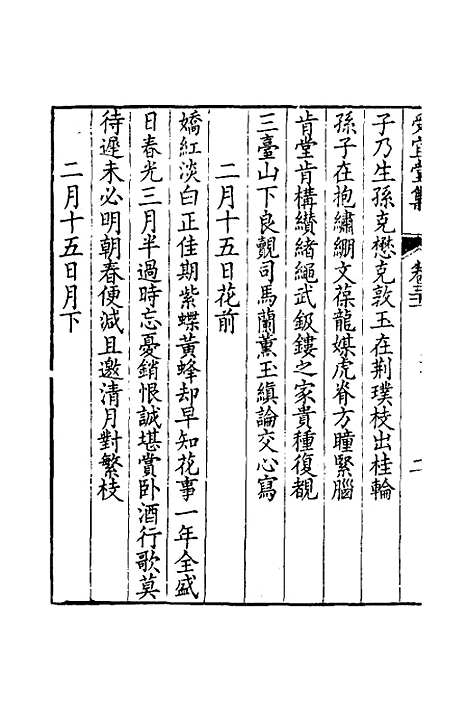 子乃生孫克懋克敦玉在荆璞枝出桂輪
孫子在抱繡綳文葆龍媒虎脊方瞳緊腦
肯堂肯構纘緒繩武鈒鏤之家貴種復覩
三臺山下良覿司馬蘭薰玉縝論交心寫
二月十五日花前
嬌紅淡白正佳期紫蝶黃蜂却早知花事一年全盛
日春光三月半過時忘憂銷恨誠堪賞卧酒行歌莫
待遲未必明朝春便減且邀清月對繁枝
二月十五日月下